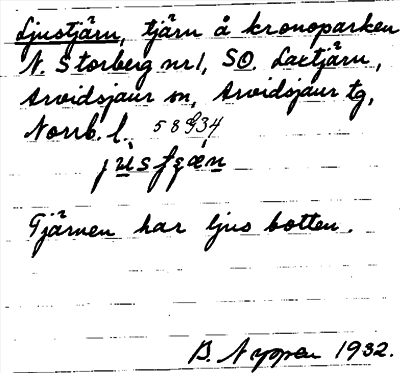 Ljustjärn, tjärn å kronoparken
N. Storberg nr 1, SO. Laxtjärn,
Arvidsjaur sn, Arvidsjaur tg,
Norrb. l. 58934
Tjärnen har ljus botten.
B. Nyman 1932.